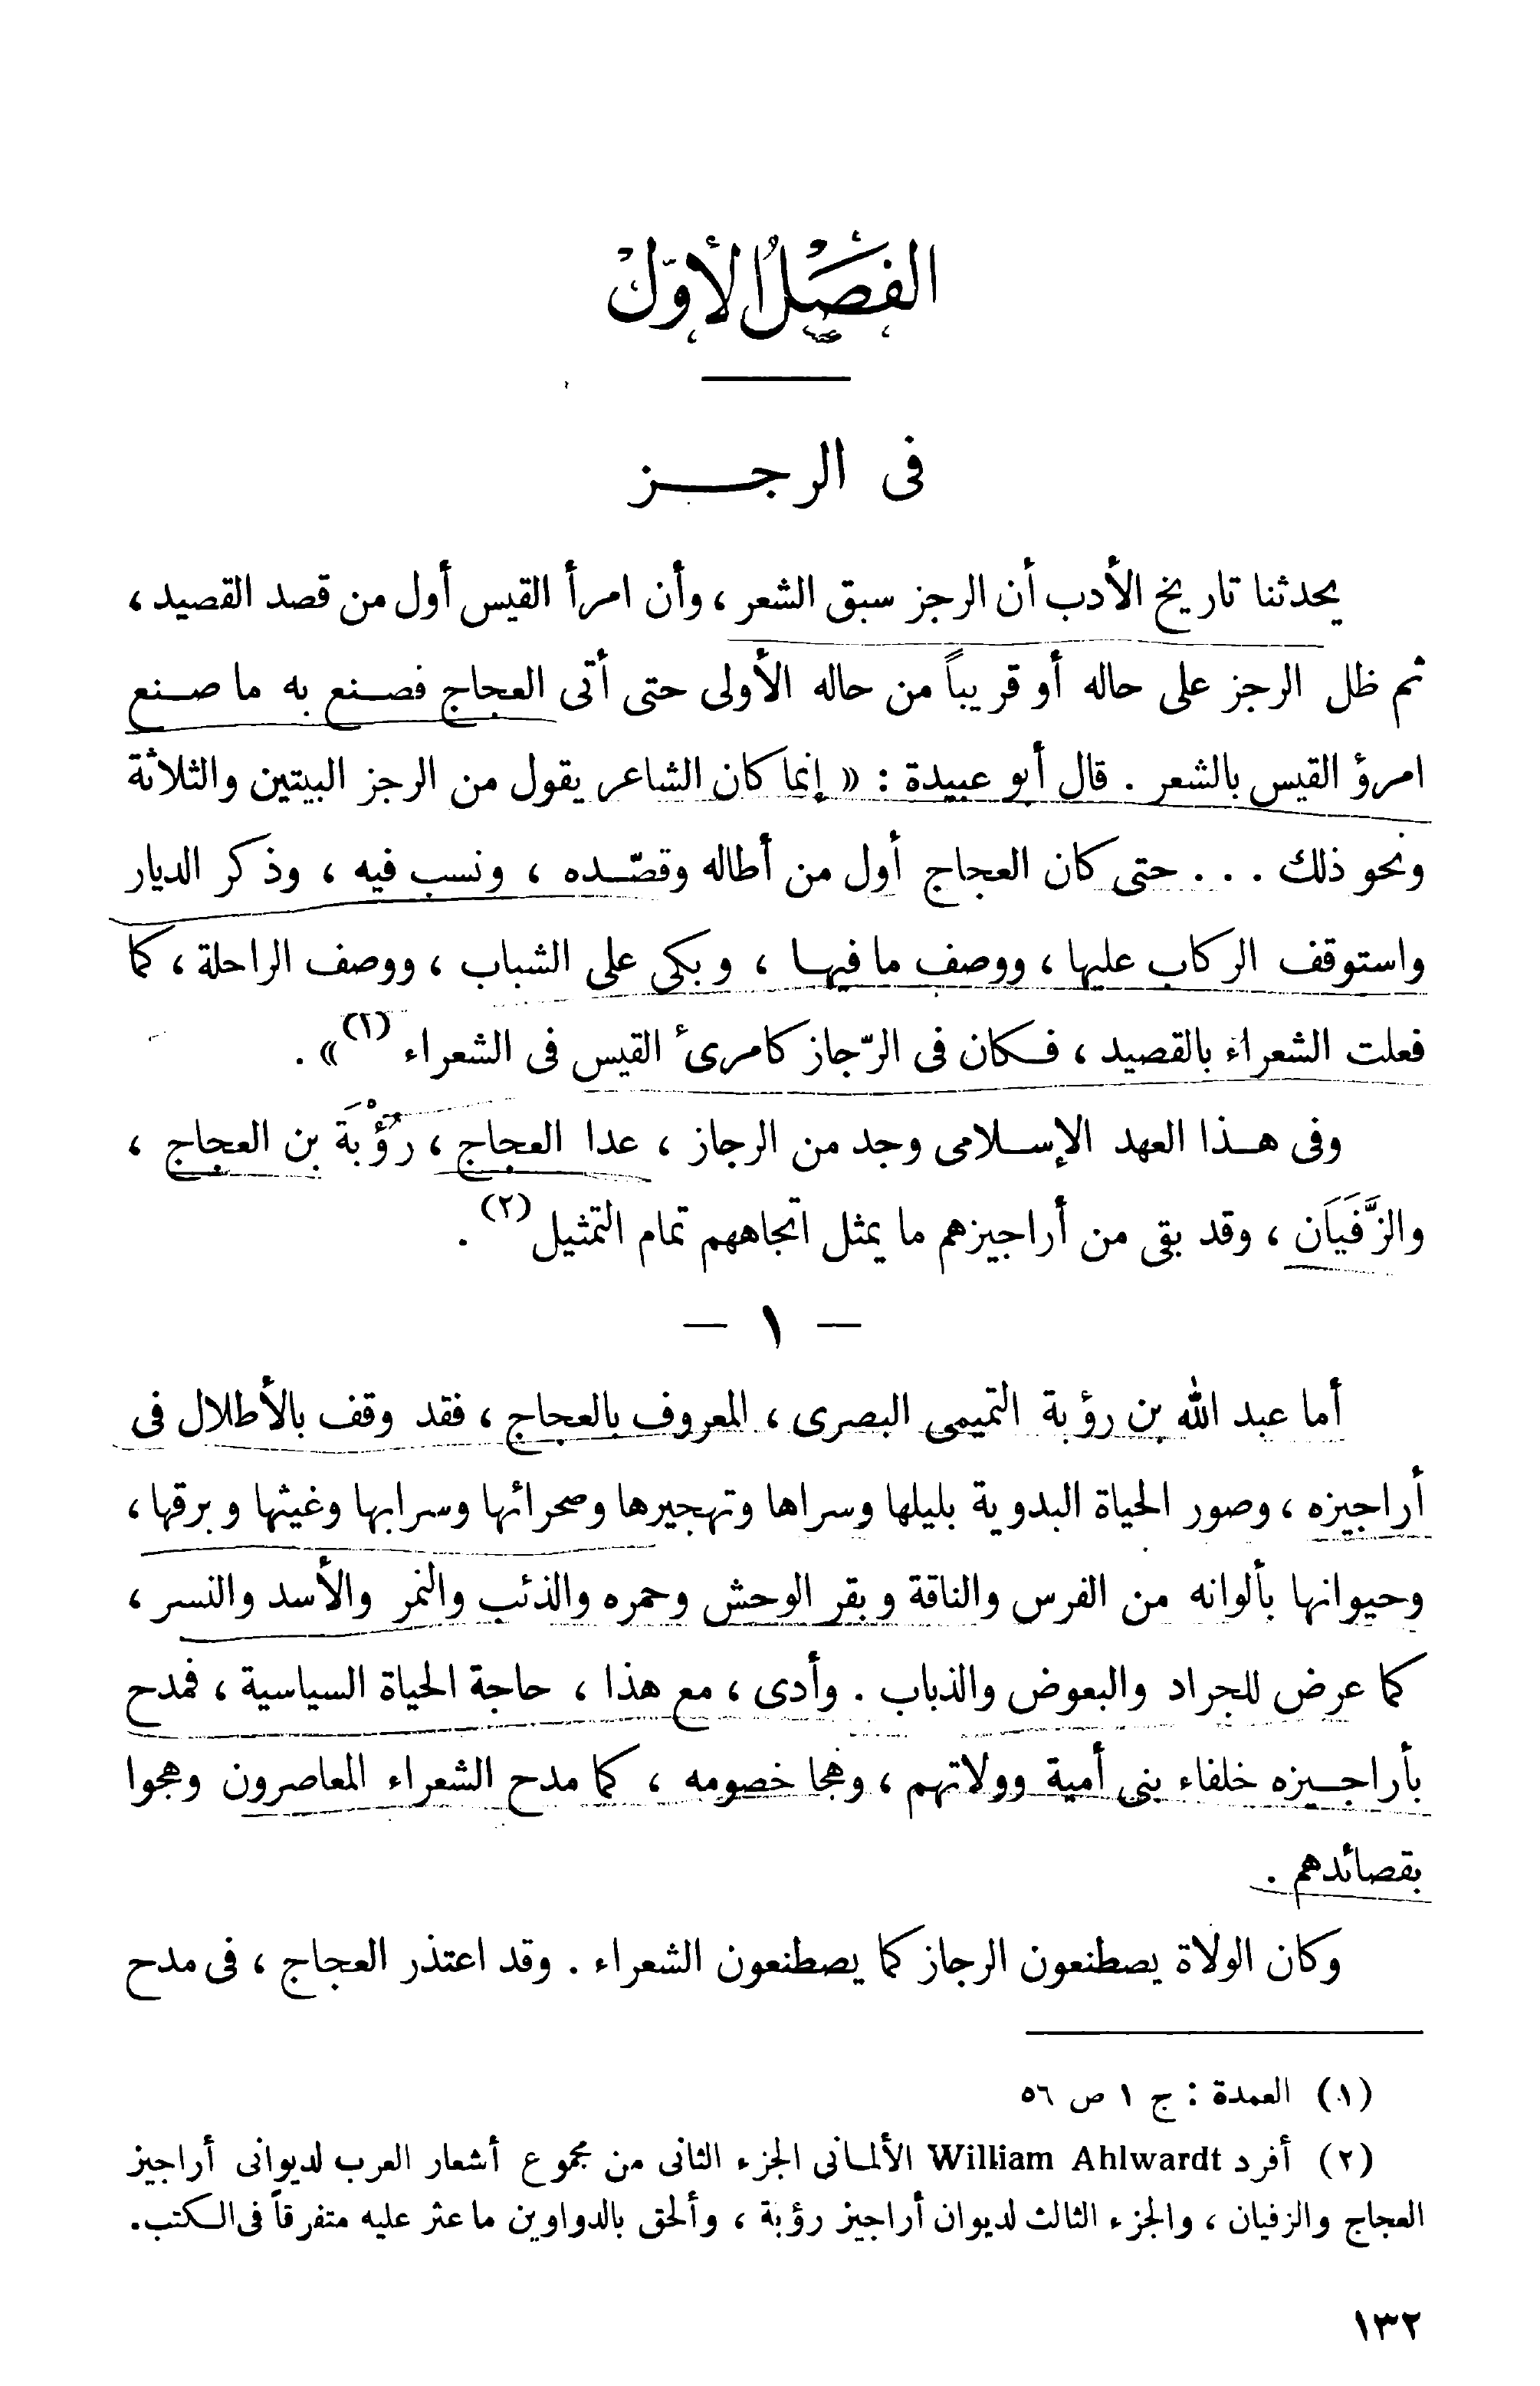 الفَصْلُ الأوّل
فى الرجــز
يحدثنا تاريخ الأدب أن الرجز سبق الشعر ، وأن امرأ القيس أول من قصد القصيد ،
ثم ظل الرجز على حاله أو قريباً من حاله الأولى حتى أتى العجاج فصنع به ما صنع
امرؤ القيس بالشعر . قال أبو عبيدة : « إنما كان الشاعر يقول من الرجز البيتين والثلاثة
ونحو ذلك . . . حتى كان العجاج أول من أطاله وقصّده ، ونسب فيه ، وذكر الديار
واستوقف الركاب عليها ، ووصف ما فيها ، وبكى على الشباب ، ووصف الراحلة ، كما
فعلت الشعراء بالقصيد ، فكان فى الرّجاز كامرىء القيس فى الشعراء (١) » .
وفى هذا العهد الإسلامى وجد من الرجاز ، عدا العجاج ، رُؤْبَة بن العجاج ،
والزَّفَيَان ، وقد بقى من أراجيزهم ما يمثل اتجاههم تمام التمثيل (٢) .
— ١ —
أما عبد الله بن رؤبة التميمى البصرى ، المعروف بالعجاج ، فقد وقف بالأطلال فى
أراجيزه ، وصور الحياة البدوية بليلها وسراها وتهجيرها وصحرائها وسرابها وغيثها وبرقها ،
وحيوانها بألوانه من الفرس والناقة وبقر الوحش وحمره والذئب والنمر والأسد والنسر ،
كما عرض للجراد والبعوض والذباب . وأدى ، مع هذا ، حاجة الحياة السياسية ، فمدح
بأراجيزه خلفاء بنى أمية وولاتهم ، وهجا خصومه ، كما مدح الشعراء المعاصرون وهجوا
بقصائدهم .
وكان الولاة يصطنعون الرجاز كما يصطنعون الشعراء . وقد اعتذر العجاج ، فى مدح
(١) العمدة : ج ١ ص ٥٦
(٢) أفرد William Ahlwardt الألمانى الجزء الثانى من مجموع أشعار العرب لديوانى أراجيز
العجاج والزفيان ، والجزء الثالث لديوان أراجيز رؤبة ، وألحق بالدواوين ما عثر عليه متفرقاً فى الكتب .
١٣٢